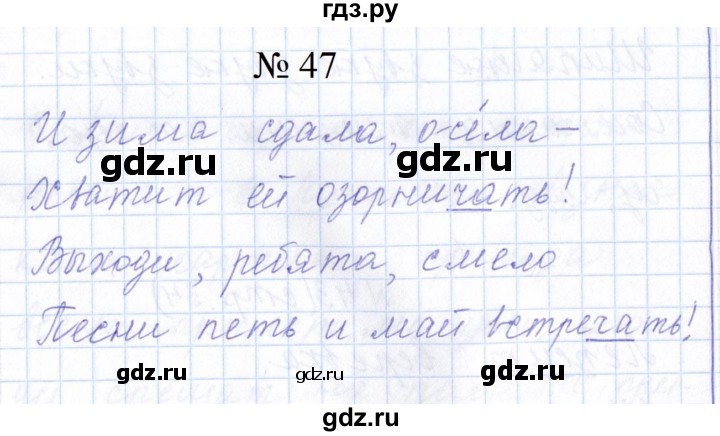 гдз.ру
№ 47
И зима сдала, осе́ла –
gdz.ru gdz.ru
хватит ей озорничать!
Выходи, ребята, смело
Песни петь и май встречать!
gdz.ru gdz.ru gdz.ru
gdz.ru